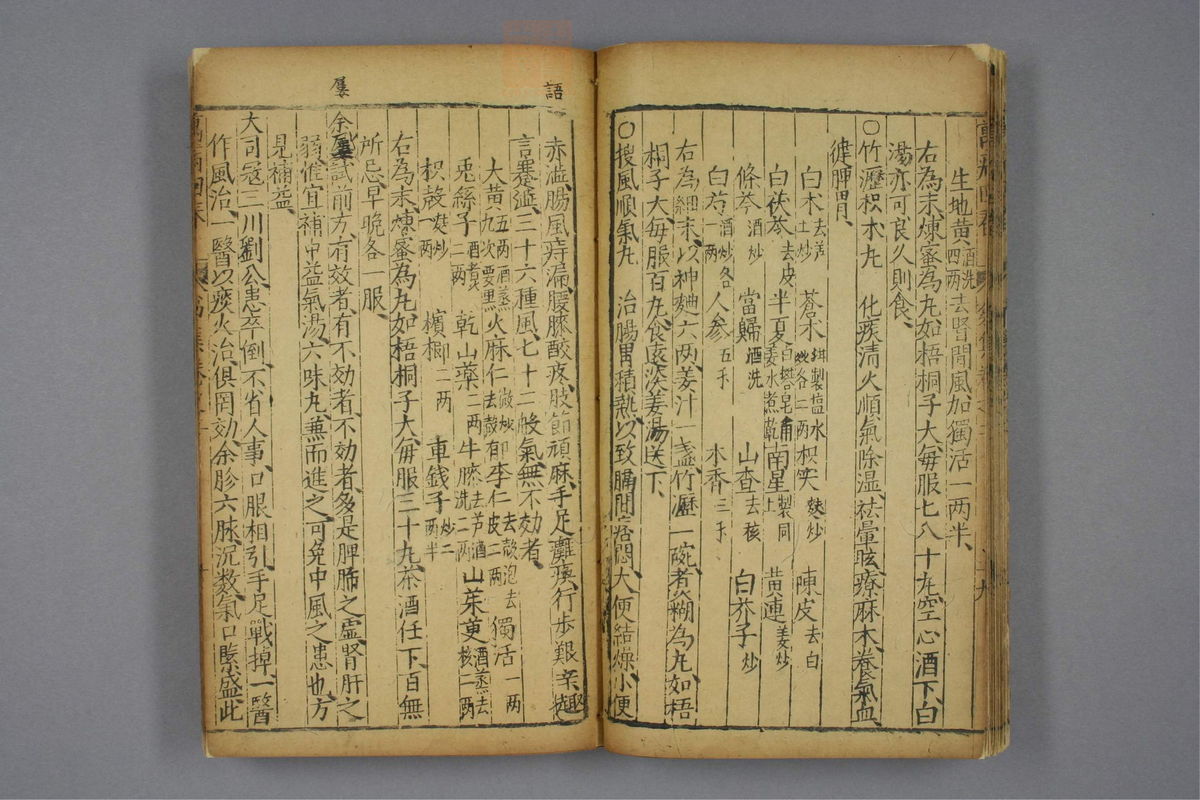 生地黄酒洗四两去腎間風加獨活一两半
右為末煉蜜為丸如梧桐子大每服七八十丸空心酒下白
湯亦可良久則食
○竹瀝枳术丸 化痰清火順氣除湿祛暈眩療麻木養氣血
健脾胃
白术去芦土炒 蒼术製塩水炒各二两枳实麩炒 陳皮去白
白茯苓去皮半夏白礬皂角姜水煮乾南星製同上 黄連姜炒
條芩酒炒 當歸酒洗 山查去核
白芍酒炒各一两人参五錢 木香三錢 白芥子炒
右為細末以神麯六两姜汁一盞竹瀝一碗煮糊為丸如梧
桐子大每服百丸食遠淡姜湯送下
○搜風順氣丸 治腸胃積熱以致膈間痞悶大便結燥小便
語
赤澁腸風痔漏腰膝酸疼肢節頑麻手足癱瘓行步艱辛
言蹇澁三十六種風七十二般氣無不効者
大黄五两酒蒸九次要黑火麻仁微炒去殼郁李仁去殼泡去皮二两獨活一两
兎絲子酒煮二两 乾山藥二两牛膝去芦酒洗二两山茱萸酒蒸去核二两
枳殻麩炒一两 檳榔二两 車錢子炒二两半
右為末煉蜜為丸如梧桐子大每服三十丸茶酒任下百無
所忌早晚各一服
屢
余屢試前方有效者有不効者不効者多是脾肺之虚腎肝之
弱惟宜補中益氣湯六味丸兼而進之可免中風之患也方
見補益
大司寇三川劉公患卒倒不省人事口眼相引手足戰掉一醫
作風治一醫以痰火治俱罔効余胗六脉沉数氣口緊盛此